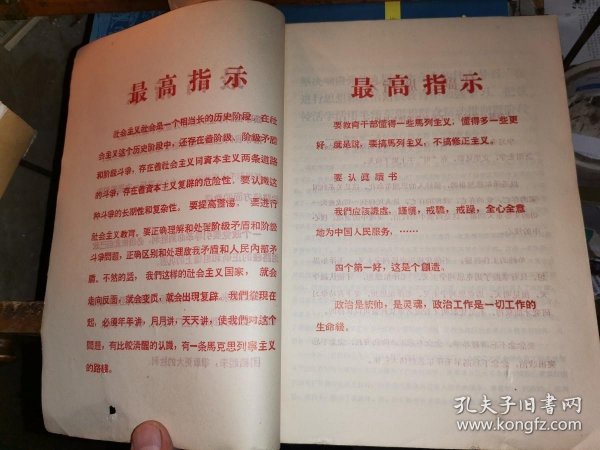 最高指示
社会主义社会是一个相当长的历史阶段。在社
会主义这个历史阶段中，还存在着阶级、阶级矛盾
和阶级斗爭，存在着社会主义同資本主义两条道路
的斗爭，存在着資本主义复辟的危险性。要认識这
种斗爭的长期性和复杂性。要提高警惕。要进行
社会主义教育。要正确理解和处理阶级矛盾和阶级
斗爭問題，正确区别和处理敌我矛盾和人民内部矛
盾。不然的話，我們这样的社会主义国家，就会
走向反面，就会变质，就会出現复辟。我們从現在
起，必須年年讲，月月讲，天天讲，使我們对这个
問題，有比較清醒的认識，有一条馬克思列寧主义
的路綫。
最高指示
要教育干部懂得一些馬列主义，懂得多一些更
好。就是說，要搞馬列主义，不搞修正主义。
要认真讀书
我們应該謙虛，謹愼，戒驕，戒躁，全心全意
地为中国人民服务，……
四个第一好，这是个創造。
政治是統帅，是灵魂，政治工作是一切工作的
生命綫。
孔夫子旧书网
www.kongfz.com